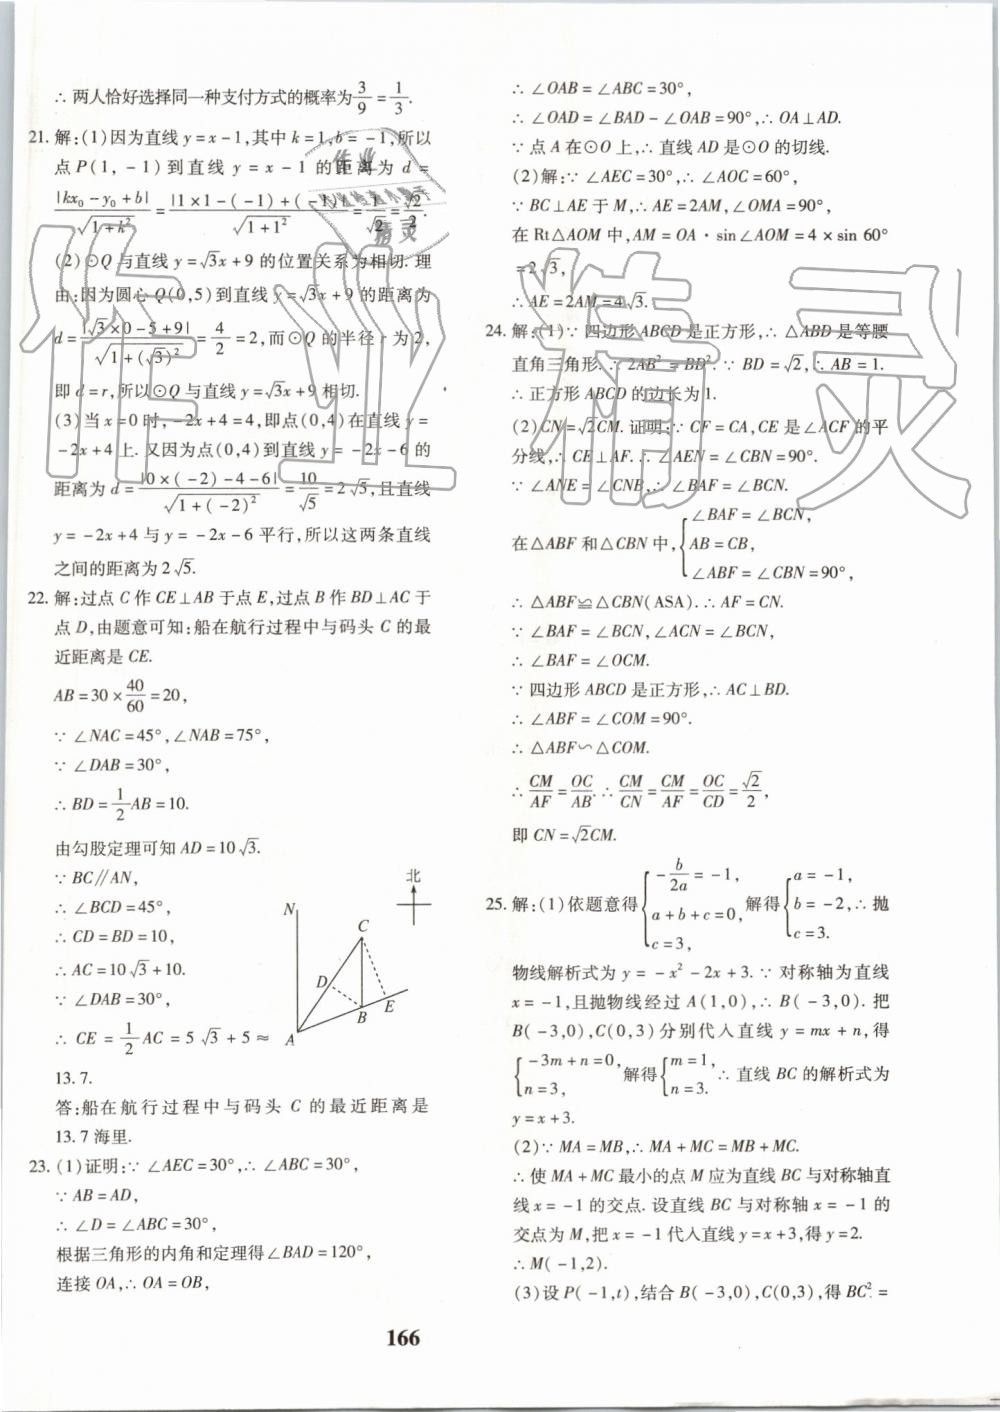 ∴ 两人恰好选择同一种支付方式的概率为3/9=1/3.
21. 解:(1)因为直线 y=x-1,其中 k=1,b=-1,所以
点 P(1,-1) 到直线 y=x-1 的距离为 d=
|kx₀-y₀+b|/√(1+k²)=|1×1-(-1)+(-1)|/√(1+1²)=1/√2=√2/2.
(2)⊙Q 与直线 y=√3x+9 的位置关系为相切. 理
由:因为圆心 Q(0,5)到直线 y=√3x+9 的距离为
d=|√3×0-5+9|/√(1+(√3)²)=4/2=2,而⊙Q 的半径 r 为 2,
即 d=r,所以⊙Q 与直线 y=√3x+9 相切.
(3)当 x=0 时,-2x+4=4,即点(0,4)在直线 y=
-2x+4 上. 又因为点(0,4)到直线 y=-2x-6 的
距离为 d=|0×(-2)-4-6|/√(1+(-2)²)=10/√5=2√5,且直线
y=-2x+4 与 y=-2x-6 平行,所以这两条直线
之间的距离为 2√5.
22. 解:过点 C 作 CE⊥AB 于点 E,过点 B 作 BD⊥AC 于
点 D,由题意可知:船在航行过程中与码头 C 的最
近距离是 CE.
AB=30×40/60=20,
∵ ∠NAC=45°,∠NAB=75°,
∵ ∠DAB=30°,
∴ BD=1/2AB=10.
由勾股定理可知 AD=10√3.
∵ BC∥AN,
∴ ∠BCD=45°,
∴ CD=BD=10,
∴ AC=10√3+10.
∵ ∠DAB=30°,
∴ CE=1/2AC=5√3+5≈
13.7.
北
N
C
D
B
E
A
答:船在航行过程中与码头 C 的最近距离是
13.7 海里.
23. (1)证明:∵ ∠AEC=30°,∴ ∠ABC=30°,
∵ AB=AD,
∴ ∠D=∠ABC=30°,
根据三角形的内角和定理得∠BAD=120°,
连接 OA,∴ OA=OB,
∴ ∠OAB=∠ABC=30°,
∴ ∠OAD=∠BAD-∠OAB=90°,∴ OA⊥AD.
∵ 点 A 在⊙O 上,∴ 直线 AD 是⊙O 的切线.
(2)解:∵ ∠AEC=30°,∴ ∠AOC=60°,
∵ BC⊥AE 于 M,∴ AE=2AM,∠OMA=90°,
在 Rt△AOM 中,AM=OA·sin∠AOM=4×sin 60°
=2√3,
∴ AE=2AM=4√3.
24. 解:(1)∵ 四边形 ABCD 是正方形,∴ △ABD 是等腰
直角三角形.∴ 2AB²=BD².∵ BD=√2,∴ AB=1.
∴ 正方形 ABCD 的边长为 1.
(2)CN=√2CM. 证明:∵ CF=CA,CE 是∠ACF 的平
分线,∴ CE⊥AF.∴ ∠AEN=∠CBN=90°.
∵ ∠ANE=∠CNB,∴ ∠BAF=∠BCN.
在△ABF 和△CBN 中,{∠BAF=∠BCN,
AB=CB,
∠ABF=∠CBN=90°,
∴ △ABF≌△CBN(ASA).∴ AF=CN.
∵ ∠BAF=∠BCN,∠ACN=∠BCN,
∴ ∠BAF=∠OCM.
∵ 四边形 ABCD 是正方形,∴ AC⊥BD.
∴ ∠ABF=∠COM=90°.
∴ △ABF∽△COM.
∴ CM/AF=OC/AB.∴ CM/CN=CM/AF=OC/CD=√2/2,
即 CN=√2CM.
25. 解:(1)依题意得{-b/2a=-1, a+b+c=0, c=3, 解得{a=-1, b=-2, c=3. ∴ 抛
物线解析式为 y=-x²-2x+3.∵ 对称轴为直线
x=-1,且抛物线经过 A(1,0),∴ B(-3,0). 把
B(-3,0),C(0,3)分别代入直线 y=mx+n,得
{-3m+n=0, n=3, 解得{m=1, n=3. ∴ 直线 BC 的解析式为
y=x+3.
(2)∵ MA=MB,∴ MA+MC=MB+MC.
∴ 使 MA+MC 最小的点 M 应为直线 BC 与对称轴直
线 x=-1 的交点. 设直线 BC 与对称轴 x=-1 的
交点为 M,把 x=-1 代入直线 y=x+3,得 y=2.
∴ M(-1,2).
(3)设 P(-1,t),结合 B(-3,0),C(0,3),得 BC²=
166
作业精灵